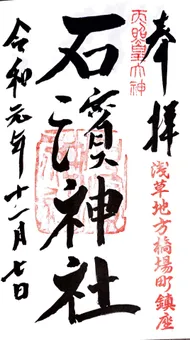 奉拝
天照皇大神
浅草地方橋場町鎮座
石濱神社
令和元年十一月七日